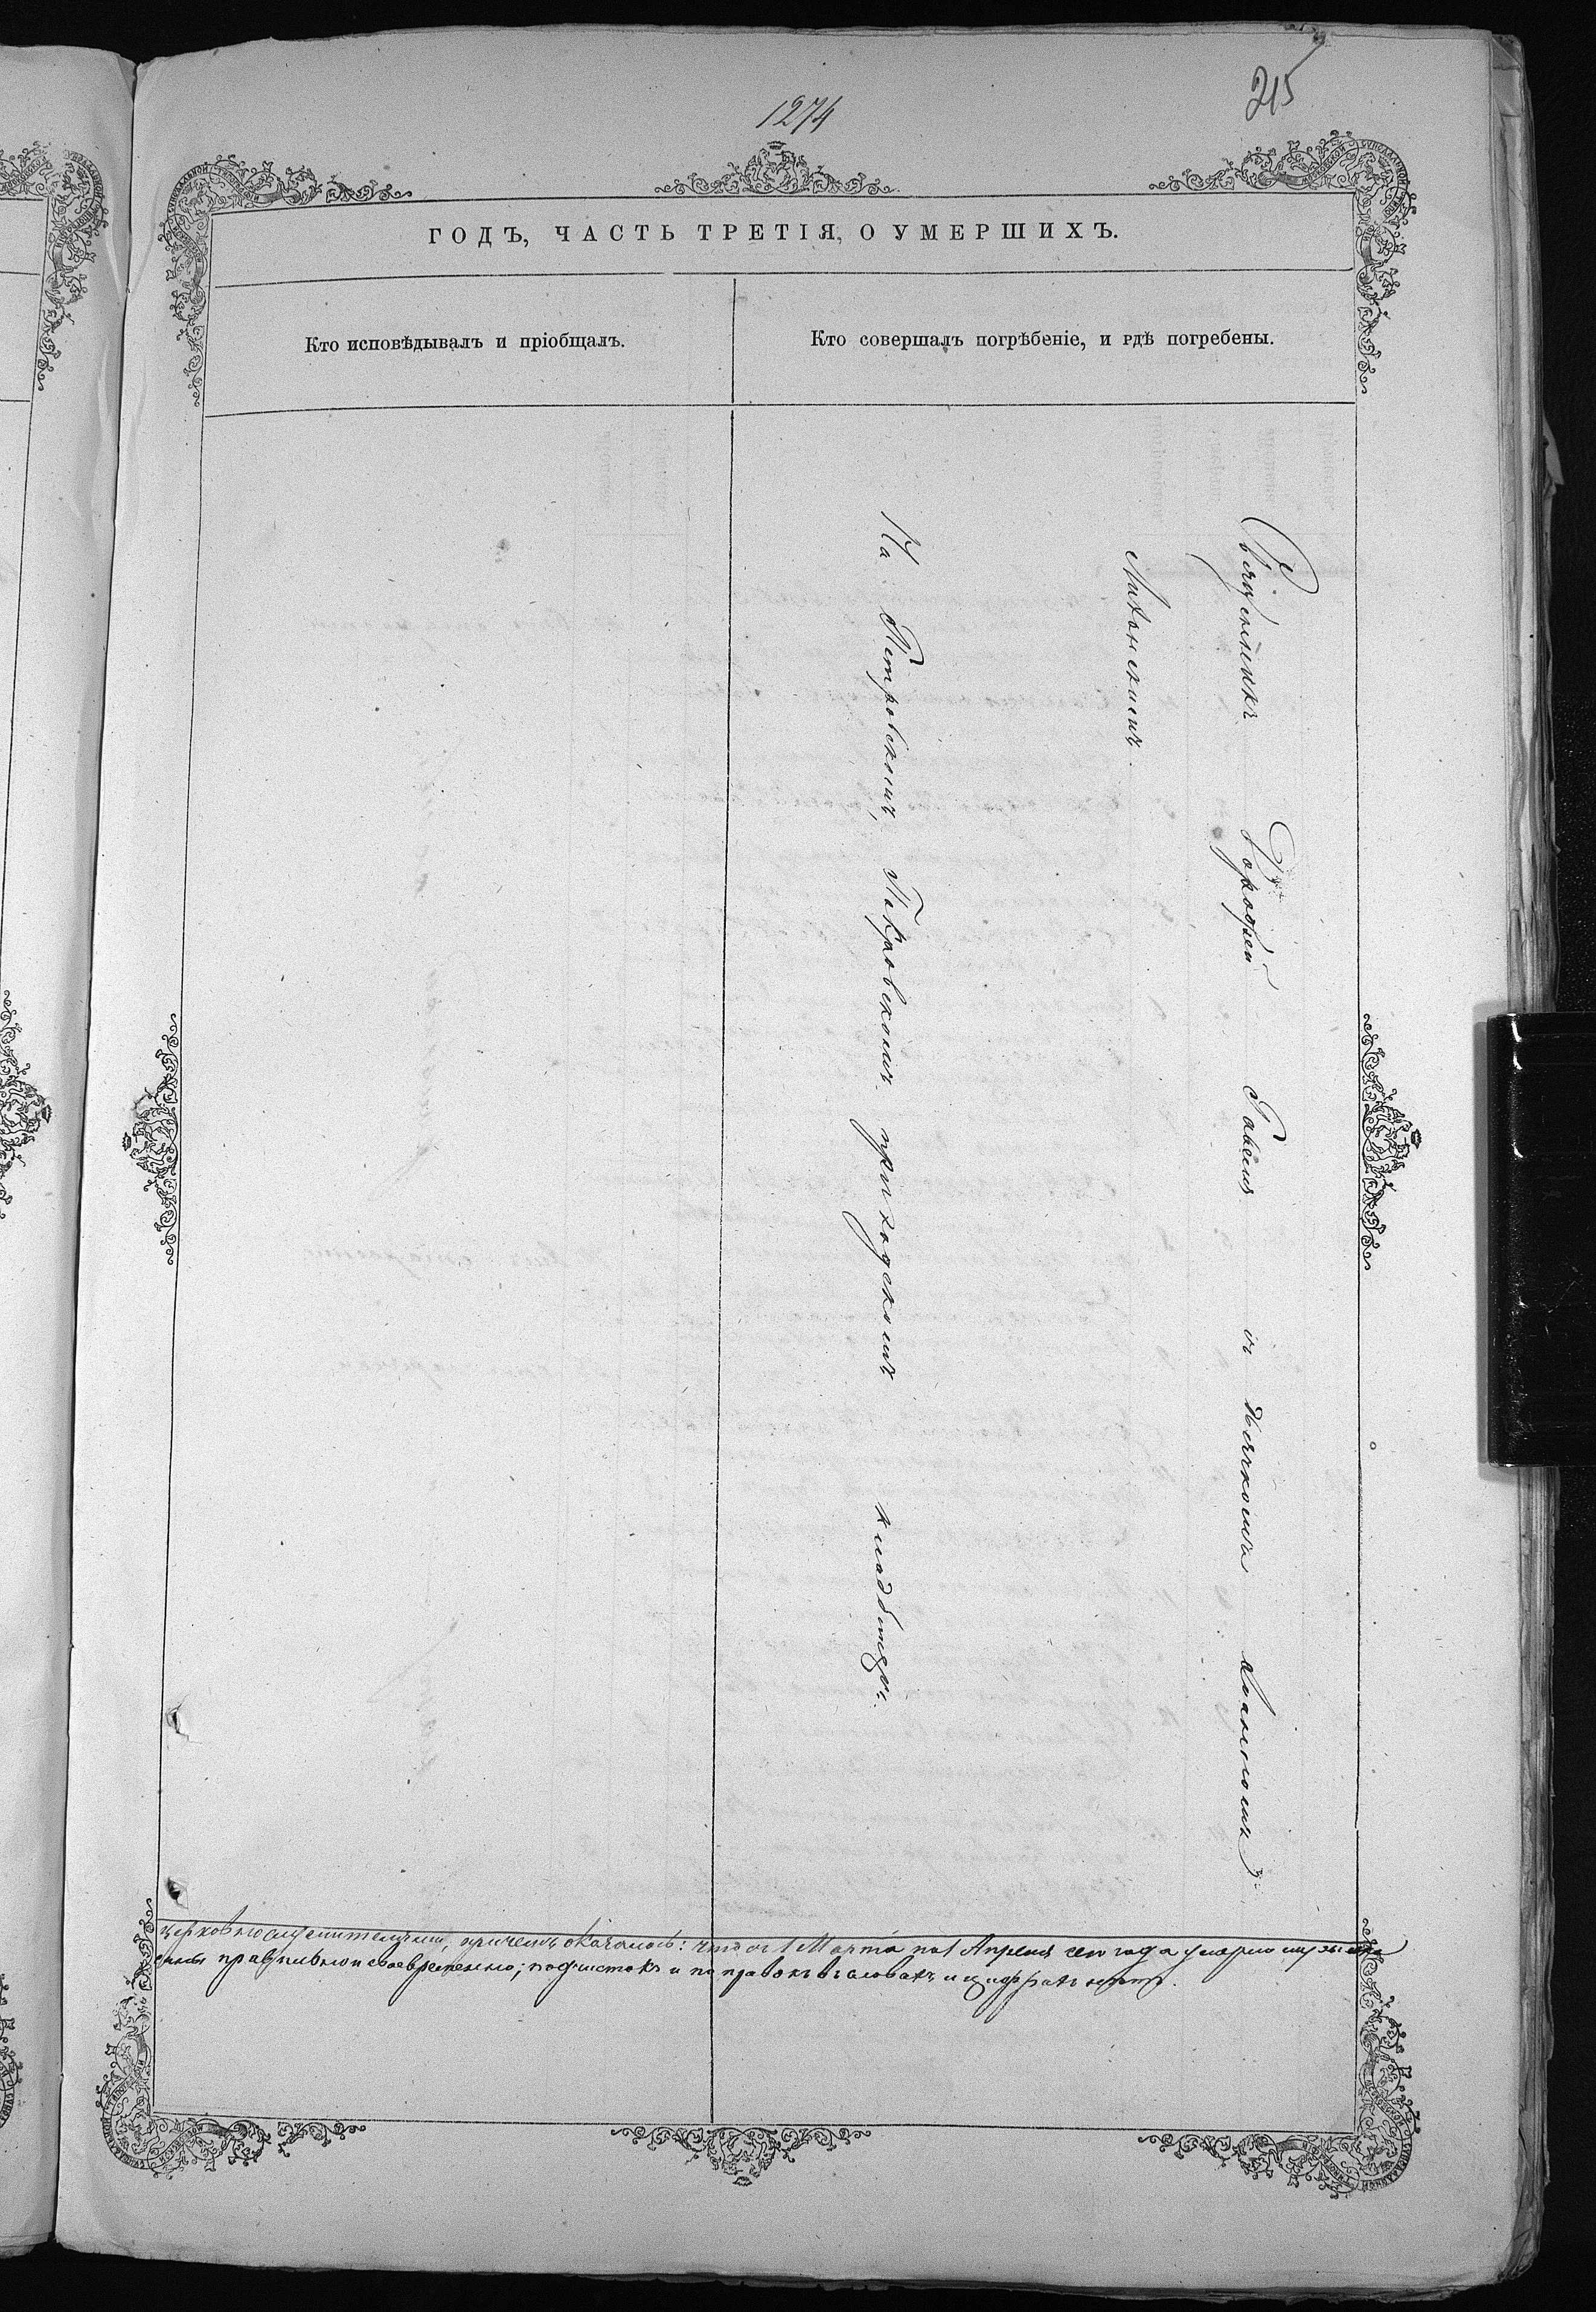 1274
215
ГОДЪ, ЧАСТЬ ТРЕТІЯ, О УМЕРШИХЪ.
Кто исповѣдывалъ и пріобщалъ.
Кто совершалъ погрѣбеніе, и гдѣ погребены.
Священникъ Дорофей съ
На Петровскомъ, Покровскомъ приходскомъ кладбищѣ.
церковнослужителями, причемъ оказалось: что съ 1 Марта по 1 Апрѣля сего года умерло
правильно и своевременно; подчистокъ и поправокъ въ словахъ и цифрахъ нѣтъ.